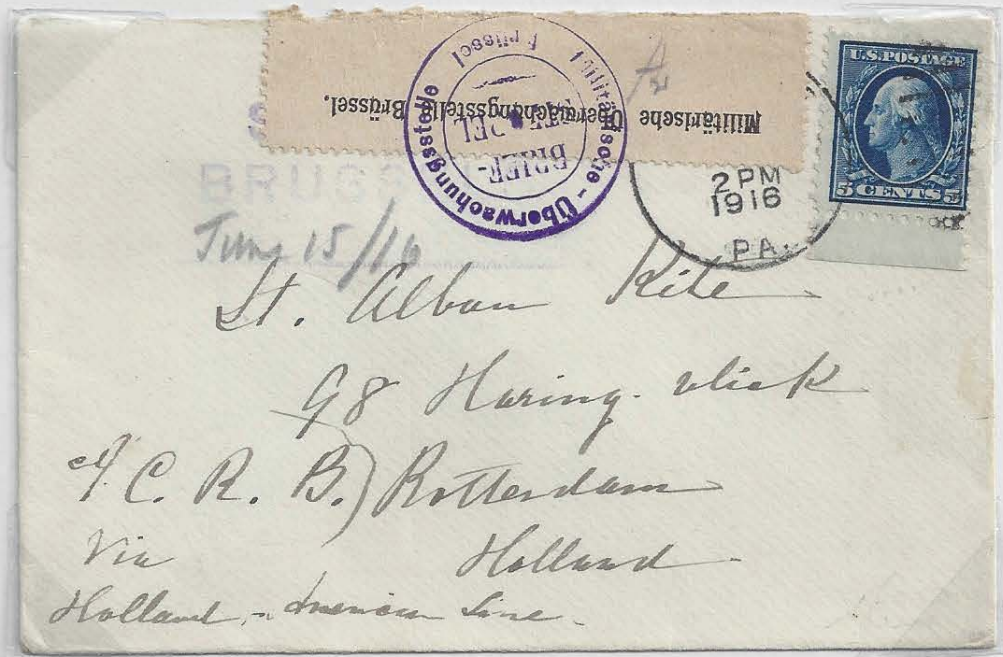 Militärische
Überwachungsstelle Brüssel.
Militärische - Überwachungsstelle Brüssel
BRIEF-
STEMPEL
U.S. POSTAGE
5 CENTS 5
2 PM
1916
PA.
BRUGE
June 15/16
St. Alban Kite
98 Haring. vliet
c/ C. R. B.) Rotterdam
Via Holland
Holland - American Line.